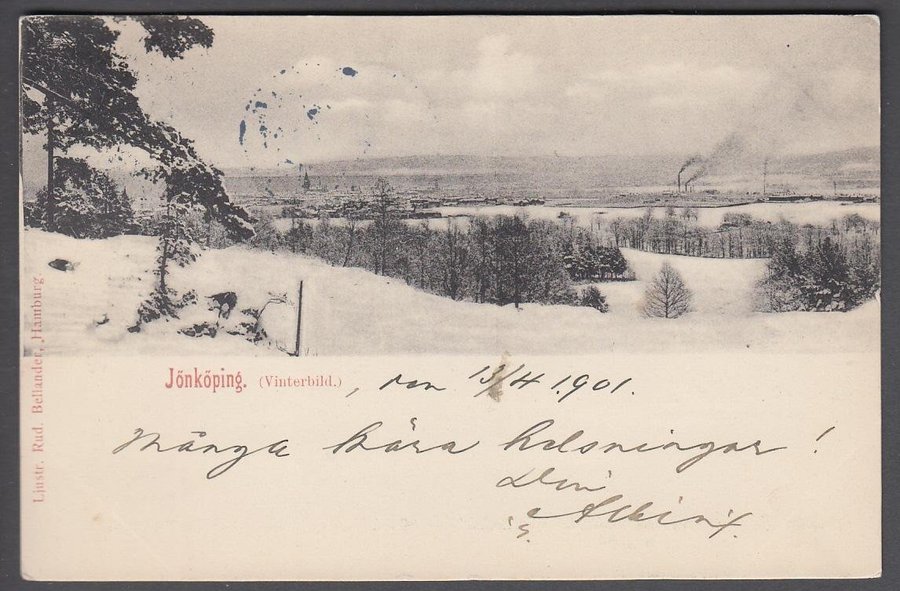 Jönköping. (Vinterbild.), den 13/4 1901.
Många kära helsningar!
Din
Albin
Ljustr. Rud. Bellander, Hamburg